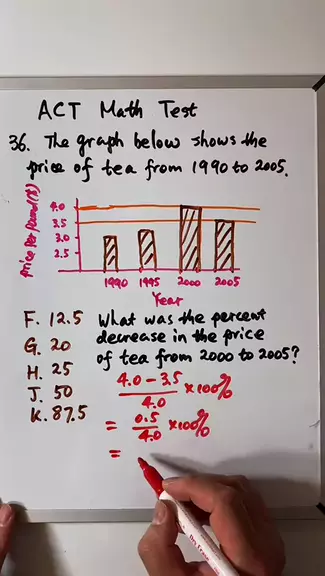 ACT Math Test
36. The graph below shows the
price of tea from 1990 to 2005.
Price per pound($)
4.0
3.5
3.0
2.5
1990 1995 2000 2005
Year
F. 12.5
G. 20
H. 25
J. 50
K. 87.5
What was the percent
decrease in the price
of tea from 2000 to 2005?
4.0 - 3.5 / 4.0 × 100%
= 0.5 / 4.0 × 100%
=